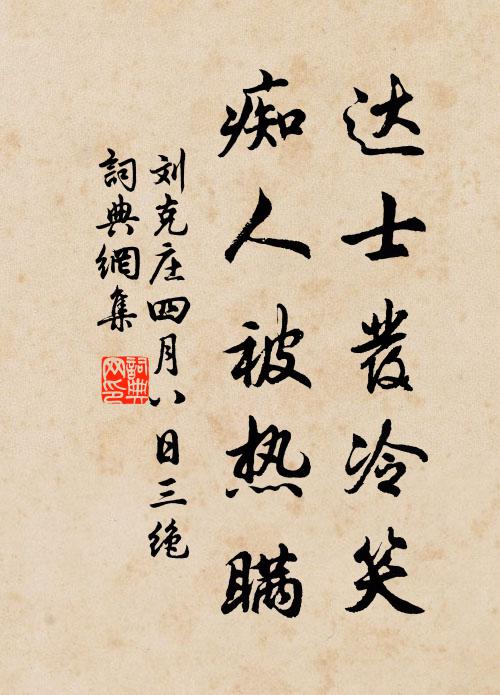 达士發冷笑
痴人被热瞒
刘克庄四月八日三绝
詞典網集
詞典网印